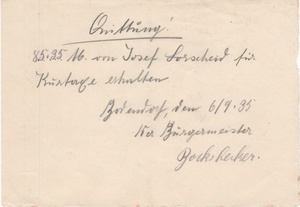 Quittung!
85.25 M. von Josef Lorscheid für
Kurtaxe erhalten
Bodendorf, den 6/9.35
Der Bürgermeister